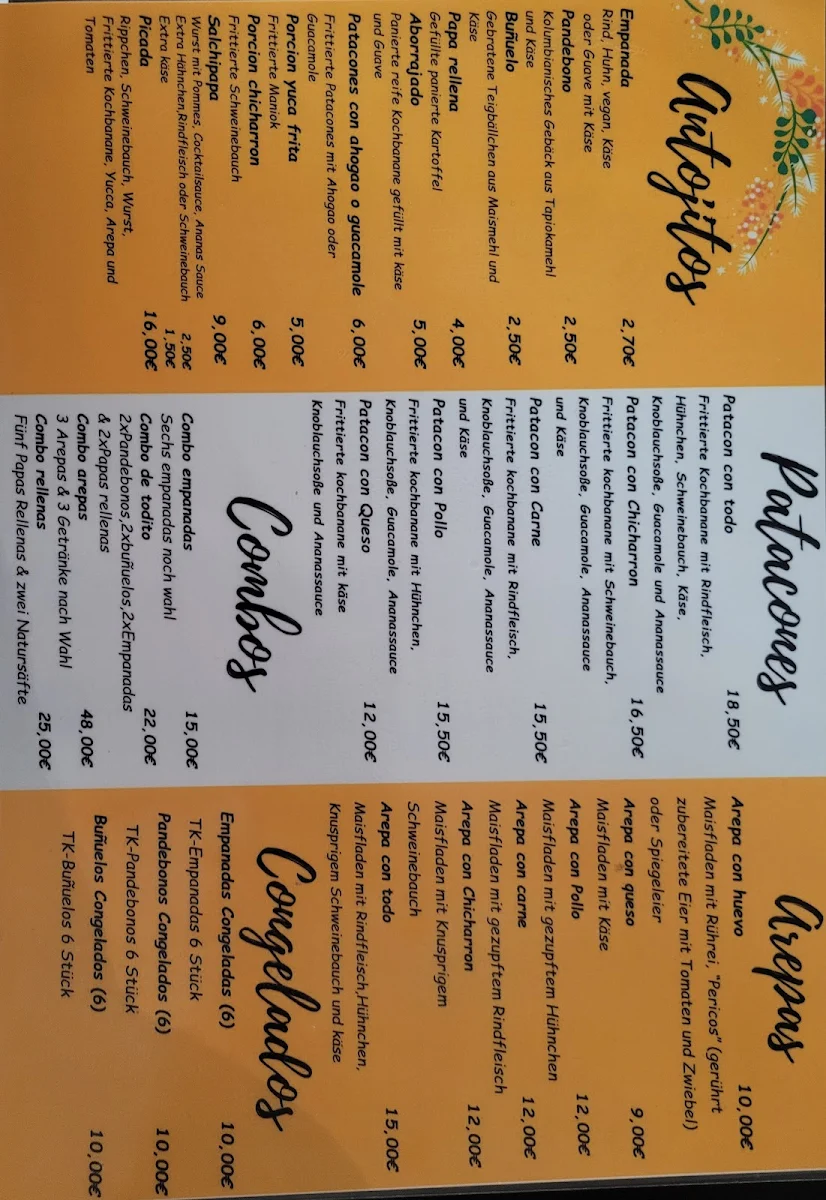 Antojitos
Empanada 2,70€
Rind, Huhn, vegan, Käse
oder Guave mit Käse
Pandebono 2,50€
Kolumbianisches Gebäck aus Tapiokamehl
und Käse
Buñuelo 2,50€
Gebratene Teigbällchen aus Maismehl und
Käse
Papa rellena 4,00€
Gefüllte panierte Kartoffel
Aborrajado 5,00€
Panierte reife Kochbanane gefüllt mit käse
und Guave
Patacones con ahogao o guacamole 6,00€
Frittierte Patacones mit Ahogao oder
Guacamole
Porcion yuca frita 5,00€
Frittierte Maniok
Porcion chicharron 6,00€
Frittierte Schweinebauch
Salchipapa 9,00€
Wurst mit Pommes, Cocktailsauce, Ananas Sauce
Extra Hähnchen,Rindfleisch oder Schweinebauch 2,50€
Extra käse 1,50€
Picada 16,00€
Rippchen, Schweinebauch, Wurst,
Frittierte Kochbanane, Yucca, Arepa und
Tomaten
Patacones
Patacon con todo 18,50€
Frittierte Kochbanane mit Rindfleisch,
Hühnchen, Schweinebauch, Käse,
Knoblauchsoße, Guacamole und Ananassauce
Patacon con Chicharron 16,50€
Frittierte kochbanane mit Schweinebauch,
Knoblauchsoße, Guacamole, Ananassauce
und Käse
Patacon con Carne 15,50€
Frittierte kochbanane mit Rindfleisch,
Knoblauchsoße, Guacamole, Ananassauce
und Käse
Patacon con Pollo 15,50€
Frittierte kochbanane mit Hühnchen,
Knoblauchsoße, Guacamole, Ananassauce
Patacon con Queso 12,00€
Frittierte kochbanane mit käse
Knoblauchsoße und Ananassauce
Combos
Combo empanadas 15,00€
Sechs empanadas noch wahl
Combo de todito 22,00€
2xPandebonos,2xbuñuelos,2xEmpanadas
& 2xPapas rellenas
Combo arepas 48,00€
3 Arepas & 3 Getränke nach Wahl
Combo rellenas 25,00€
Fünf Papas Rellenas & zwei Natursäfte
Arepas
Arepa con huevo 10,00€
Maisfladen mit Rührei, "Pericos" (gerührt
zubereitete Eier mit Tomaten und Zwiebel)
oder Spiegeleier
Arepa con queso 9,00€
Maisfladen mit Käse
Arepa con Pollo 12,00€
Maisfladen mit gezupftem Hühnchen
Arepa con carne 12,00€
Maisfladen mit gezupftem Rindfleisch
Arepa con Chicharron 12,00€
Maisfladen mit Knusprigem
Schweinebauch
Arepa con todo 15,00€
Maisfladen mit Rindfleisch,Hühnchen,
Knusprigem Schweinebauch und käse
Congelados
Empanadas Congeladas (6) 10,00€
TK-Empanadas 6 Stück
Pandebonos Congelados (6) 10,00€
TK-Pandebonos 6 Stück
Buñuelos Congelados (6) 10,00€
TK-Buñuelos 6 Stück